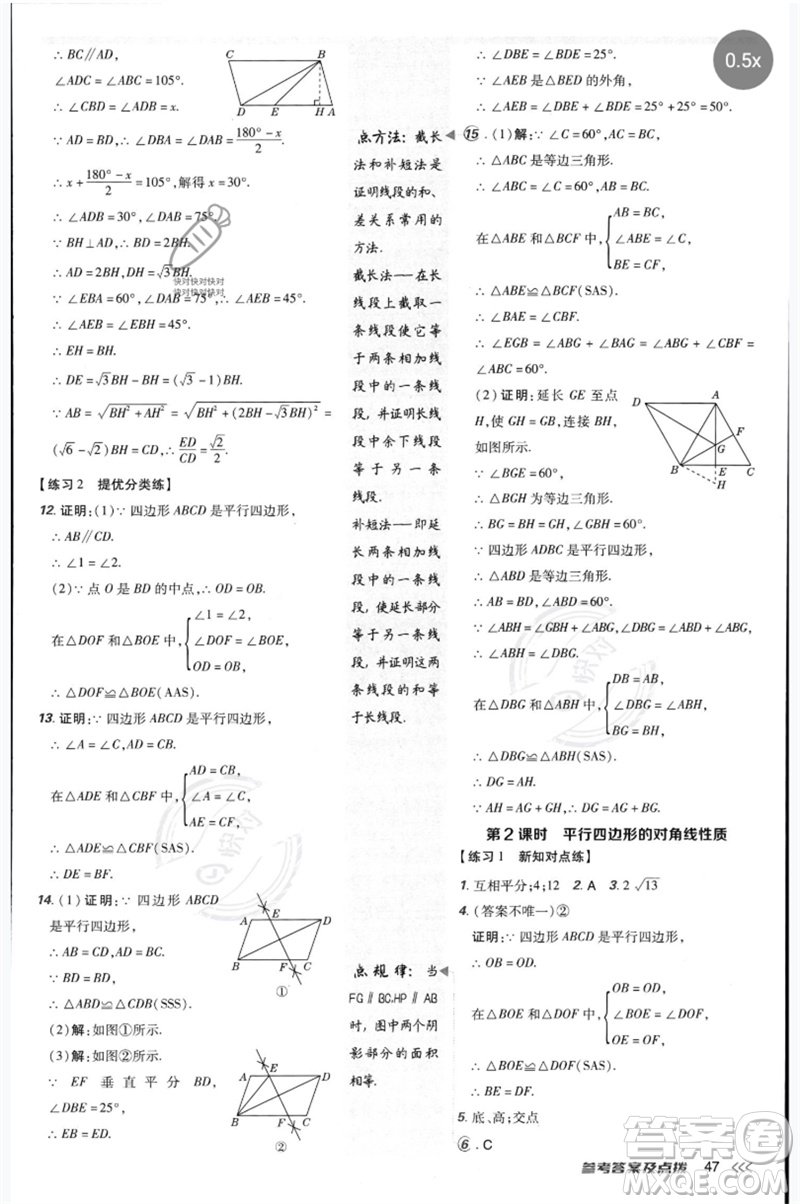 ∴ BC∥AD,
∠ADC = ∠ABC = 105°.
∴ ∠CBD = ∠ADB = x.
∵ AD = BD, ∴ ∠DAB = \frac{180° - x}{2}.
∴ x + \frac{180° - x}{2} = 105°, 解得 x = 30°.
∴ ∠ADB = 30°, ∠DAB = 75°.
∵ BH⊥AD, ∴ BD = 2BH.
∴ AD = 2BH, DH = √3BH.
∵ ∠EBA = 60°, ∠DAB = 75°,
∴ ∠AEB = ∠EBH = 45°.
∴ EH = BH.
∴ DE = √3BH - BH = (√3 - 1)BH.
∵ AB = √(BH² + AH²) = √(BH² + (2BH - √3BH)²) =
(√6 - √2)BH = CD, ∴ \frac{ED}{CD} = \frac{√2}{2}.
C B
D E H A
快对快对快对
快对快对快对
【练习2 提优分类练】
12. 证明: (1)∵ 四边形 ABCD 是平行四边形,
∴ AB∥CD.
∴ ∠1 = ∠2.
(2)∵ 点 O 是 BD 的中点, ∴ OD = OB.
在△DOF 和△BOE 中, { ∠1 = ∠2,
∠DOF = ∠BOE,
OD = OB,
∴ △DOF≌△BOE(AAS).
13. 证明: ∵ 四边形 ABCD 是平行四边形,
∴ ∠A = ∠C, AD = CB.
在△ADE 和△CBF 中, { AD = CB,
∠A = ∠C,
AE = CF,
∴ △ADE≌△CBF(SAS).
∴ DE = BF.
14. (1) 证明: ∵ 四边形 ABCD
是平行四边形,
∴ AB = CD, AD = BC.
∵ BD = BD,
∴ △ABD≌△CDB(SSS).
(2)解: 如图①所示.
(3)解: 如图②所示.
∵ EF 垂直平分 BD,
∠DBE = 25°,
∴ EB = ED.
A E D
B F C
①
A E D
B F C
②
点方法: 截长
法和补短法是
证明线段的和、
差关系常用的
方法.
截长法——在长
线段上截取一
条线段使它等
于两条相加线
段中的一条线
段, 并证明长线
段中余下线段
等于另一条
线段.
补短法——即延
长两条相加线
段中的一条线
段, 使延长部分
等于另一条线
段, 并证明这两
条线段的和等
于长线段.
点规律: 当
FG∥BC, HP∥AB
时, 图中两个阴
影部分的面积
相等.
∴ ∠DBE = ∠BDE = 25°.
∵ ∠AEB 是△BED 的外角,
∴ ∠AEB = ∠DBE + ∠BDE = 25° + 25° = 50°.
15. (1)解: ∵ ∠C = 60°, AC = BC,
∴ △ABC 是等边三角形.
∴ AB = BC, ∠ABE = 60°.
在△ABE 和△BCF 中, { AB = BC,
∠ABE = ∠C,
BE = CF,
∴ △ABE≌△BCF(SAS).
∴ ∠BAE = ∠CBF.
∴ ∠EGB = ∠ABG + ∠BAG = ∠ABG + ∠CBF =
∠ABC = 60°.
(2) 证明: 延长 GE 至点
H, 使 GH = GB, 连接 BH,
如图所示.
∵ ∠BGE = 60°,
∴ △BGH 为等边三角形.
∴ BG = BH = GH, ∠GBH = 60°.
∵ 四边形 ADBC 是平行四边形,
△ABC 是等边三角形,
∴ AB = BD, ∠ABD = 60°.
∵ ∠ABH = ∠GBH + ∠ABG, ∠DBG = ∠ABD +
∠ABG,
∴ ∠ABH = ∠DBG.
在△DBG 和△ABH 中, { DB = AB,
∠DBG = ∠ABH,
BG = BH,
∴ △DBG≌△ABH(SAS).
∴ DG = AH.
∵ AH = AG + GH, ∴ DG = AG + BG.
D A
F
G
B E C
H
第2课时 平行四边形的对角线性质
【练习1 新知对点练】
1. 互相平分; 4; 12 2. A 3. 2√13
4. (答案不唯一)②
证明: ∵ 四边形 ABCD 是平行四边形,
∴ OB = OD.
在△BOE 和△DOF 中, { OB = OD,
∠BOE = ∠DOF,
OE = OF,
∴ △BOE≌△DOF(SAS).
∴ BE = DF.
5. 底、高; 交点
6. C
参考答案及点拨 47
0.5x
快对
快对
答案圈
MXQE.COM